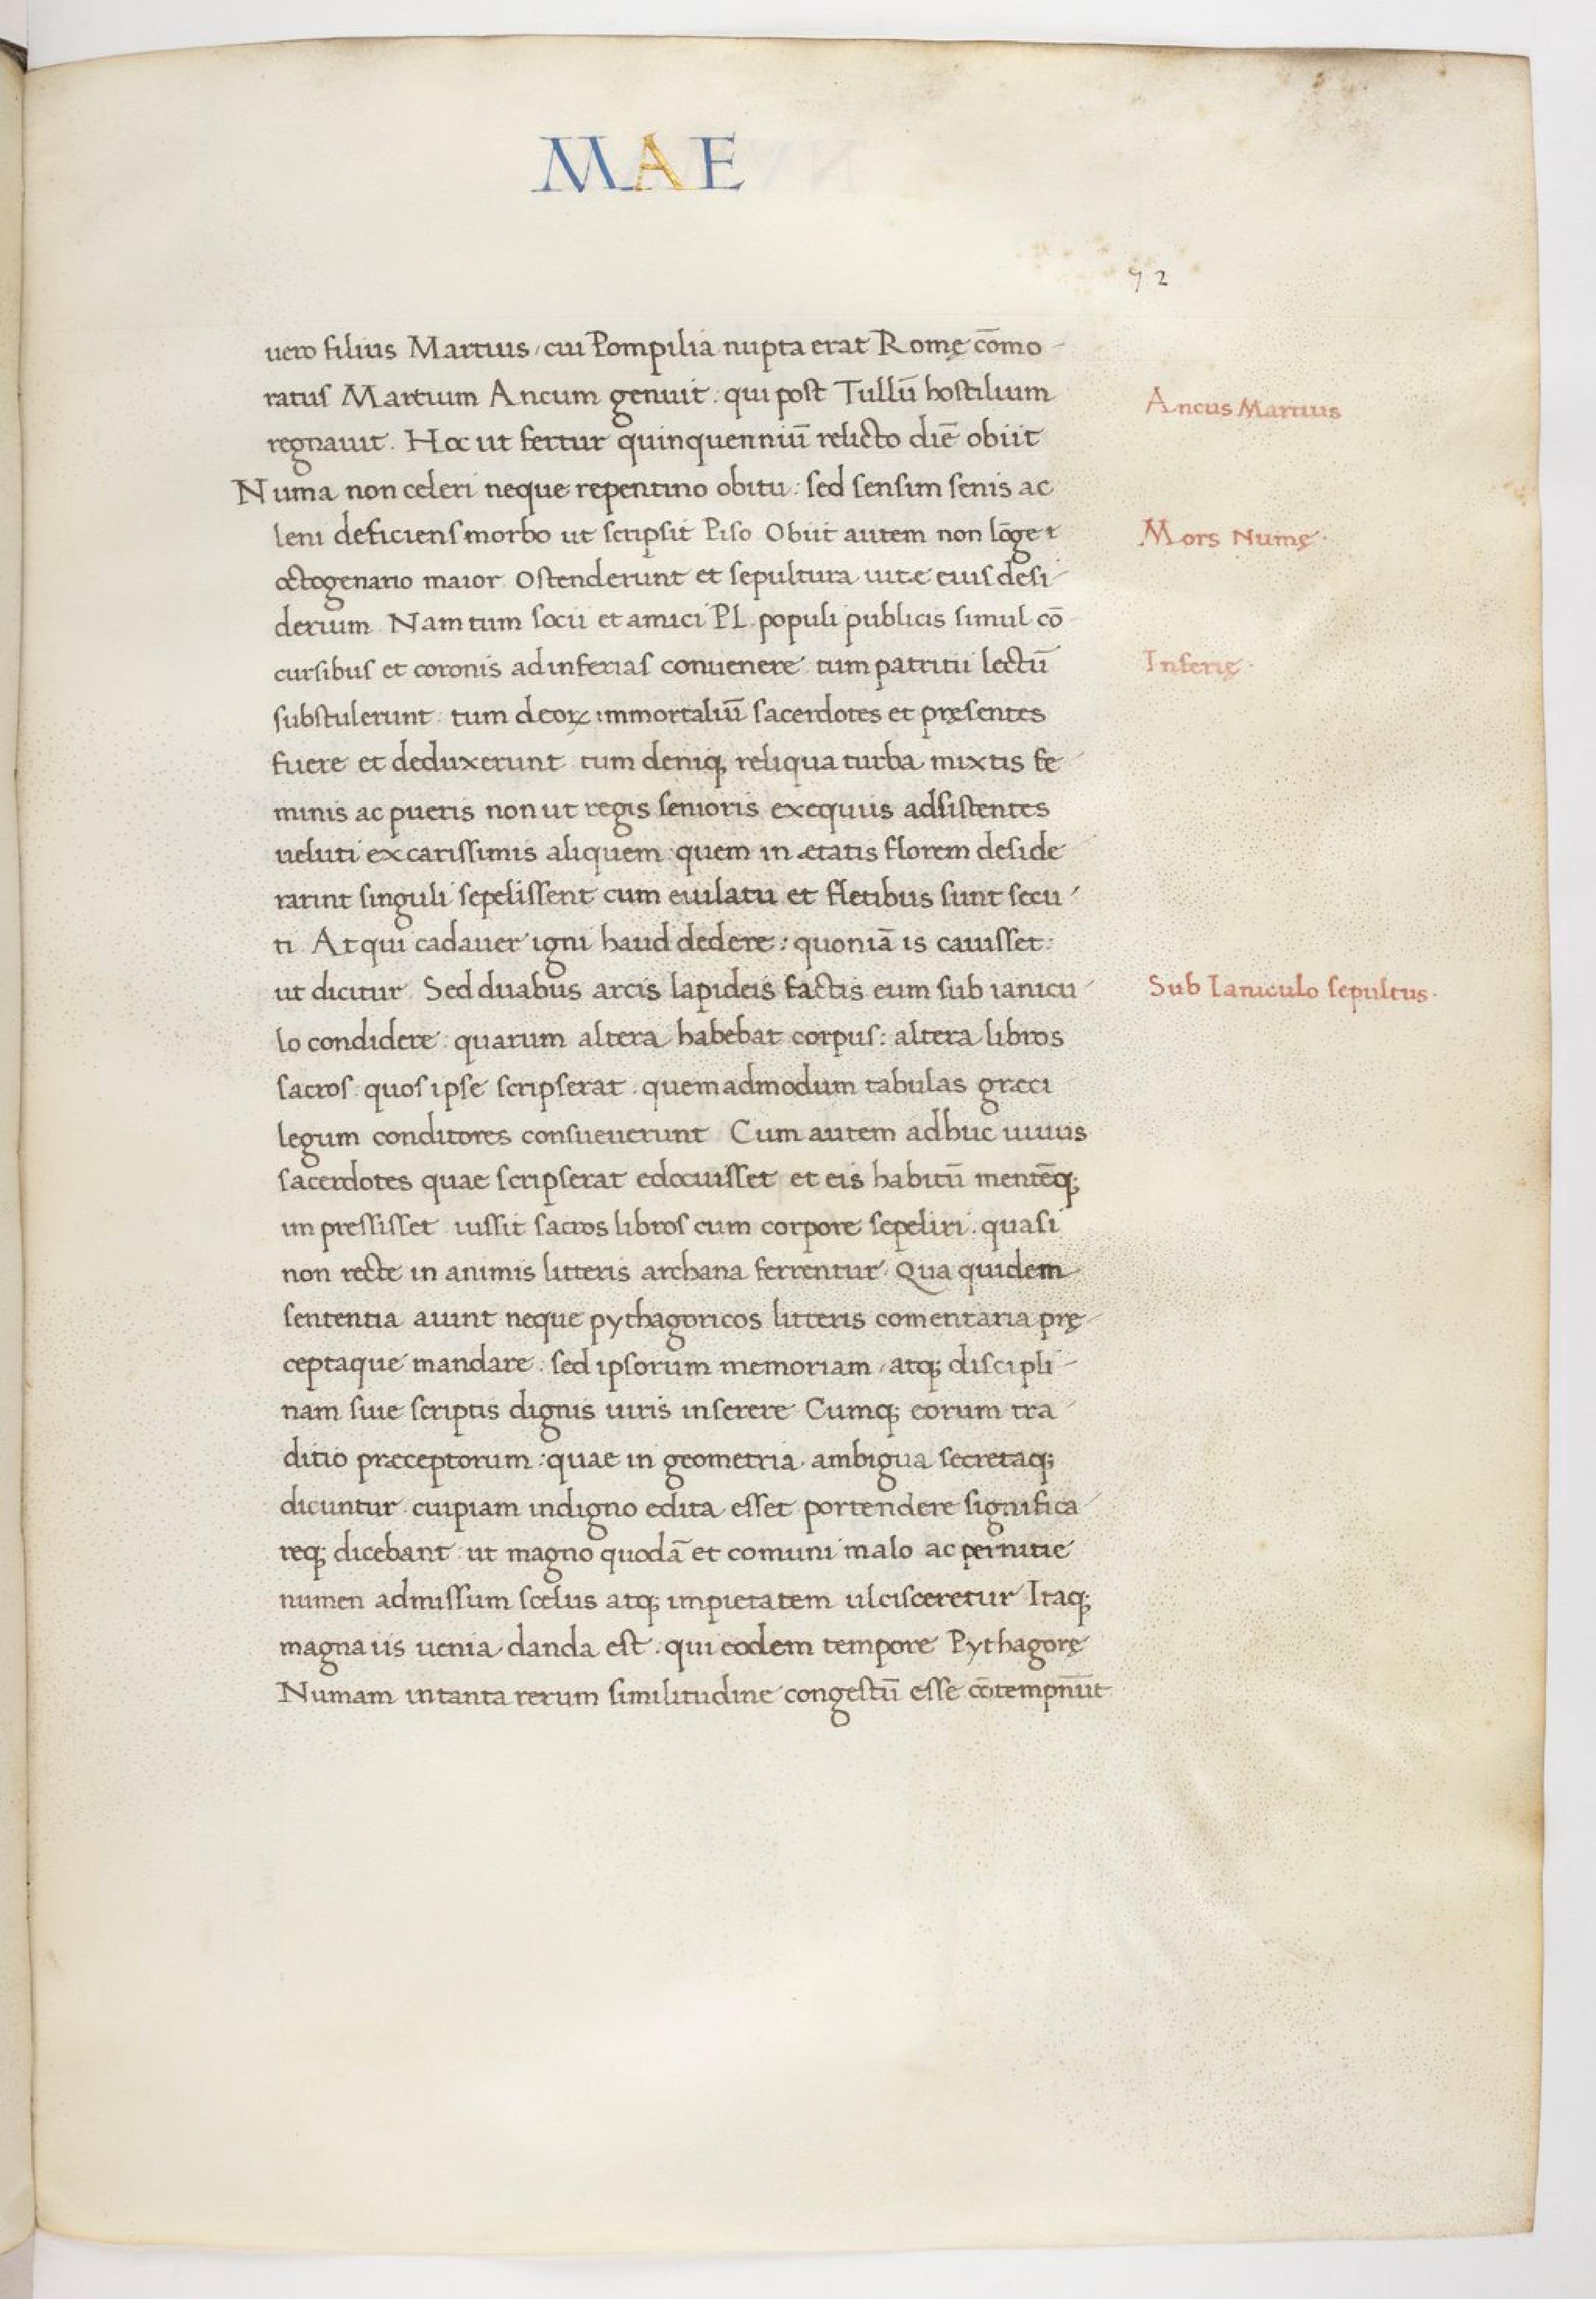 MAE
92
uero filius Martius, cui Pompilia nupta erat Romę cōmo-
ratus Martium Ancum genuit. qui post Tullū hostilium
Ancus Martius
regnauit. Hoc ut fertur quinquenniū relicto diē obiit
Numa non celeri neque repentino obitu: sed sensim senis ac
leni deficiens morbo ut scripsit Piso Obiit autem non lōge
Mors Numę.
octogenario maior Ostenderunt et sepultura uitæ eius desi-
derium Nam tum socii et amici P.L. populi publicis simul cō-
cursibus et coronis ad inferias conuenere tum patritii lectū
Inferię.
substulerunt tum deoꝝ immortaliū sacerdotes et pręsentes
fuere et deduxerunt tum deniq; reliqua turba mixtis fe-
minis ac pueris non ut regis senioris exequiis adsistentes
ueluti ex carissimis aliquem: quem in ætatis florem deside-
rarint singuli sepelissent cum eiulatu et fletibus sunt secu-
ti Atqui cadauer igni haud dedere: quoniā is cauisset:
ut dicitur Sed duabus arcis lapideis factis eum sub ianicu-
Sub Ianiculo sepultus.
lo condidere: quarum altera habebat corpus: altera libros
sacros quos ipse scripserat. quemadmodum tabulas græci
legum conditores consueuerunt Cum autem adhuc uiuus
sacerdotes quae scripserat edocuisset et eis habitū mentēq;
impressisset iussit sacros libros cum corpore sepeliri. quasi
non recte in animis litteris archana ferrentur. Qua quidem
sententia aiunt neque pythagoricos litteris comentaria prę-
ceptaque mandare. sed ipsorum memoriam, atq; discipli-
nam siue scriptis dignis uiris inserere Cumq; eorum tra-
ditio præceptorum: quae in geometria ambigua secretaq;
dicuntur cuipiam indigno edita esset portendere significa-
req; dicebant ut magno quodā et comuni malo ac pernitie
numen admissum scelus atq; impietatem ulcisceretur Itaq;
magna iis uenia danda est. qui eodem tempore Pythagorę
Numam in tanta rerum similitudine congestū esse cōtempnūt